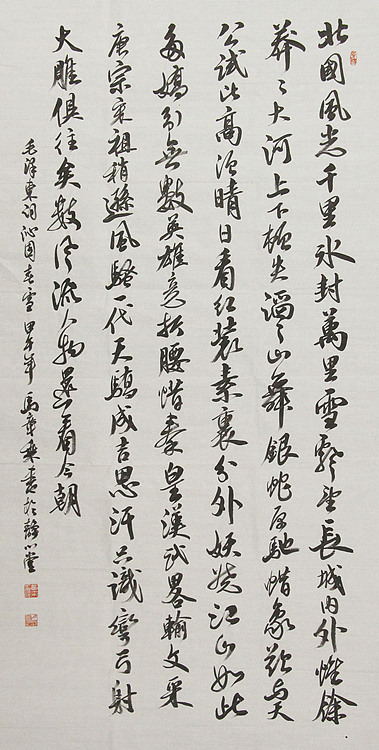 北國風光千里冰封萬里雪飄望長城内外惟餘
莽〻大河上下頓失滔〻山舞銀蛇原馳蜡象欲與天
公試比高須晴日看紅裝素裹分外妖嬈江山如此
多嬌引無數英雄竞折腰惜秦皇漢武畧輸文采
唐宗宋祖稍遜風騷一代天驕成吉思汗只識彎弓射
大雕俱往矣數風流人物還看今朝
毛澤東詞沁園春雪 甲午年 馬 書於静心堂